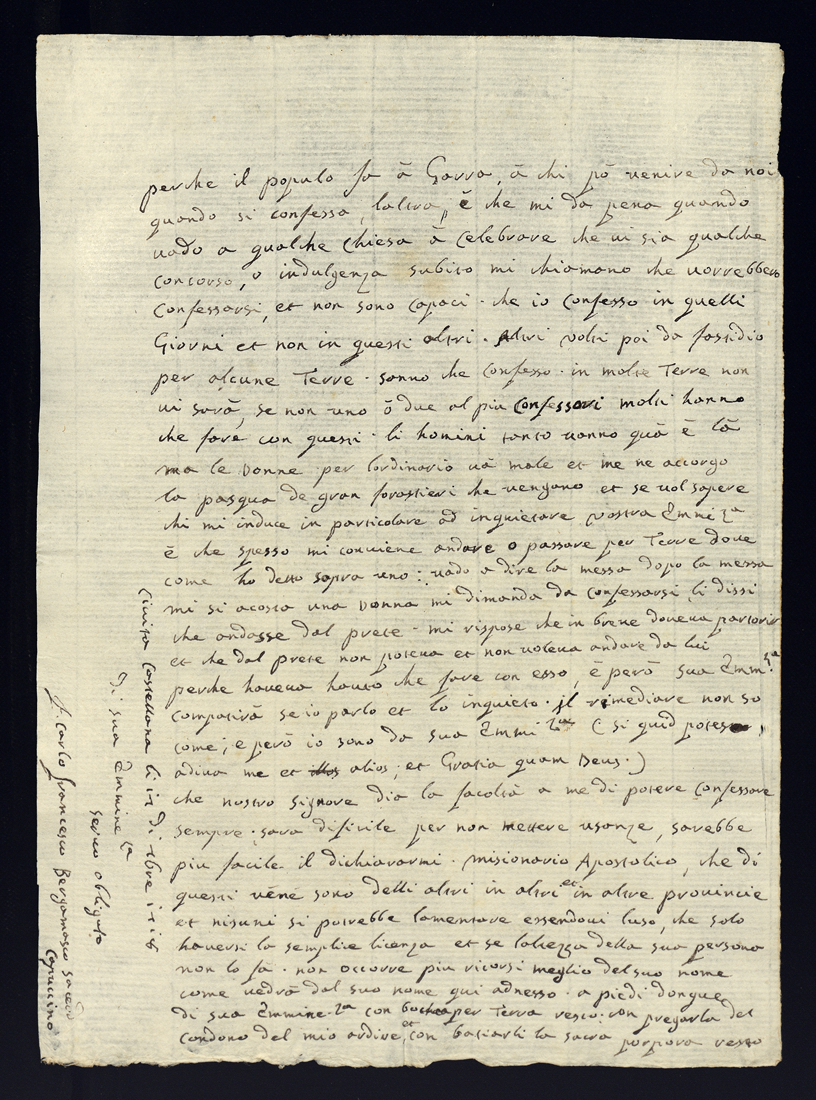 perche il populo fa à Garra, à chi pò venire da noi
quando si confessa, laltra, è che mi da pena quando
vado a qualche Chiesa à Celebrare che vi sia qualche
Concorso, o indulgenza subito mi chiamano che vorrebbero
Confessarsi, et non sono Capaci che io Confesso in quelli
Giorni et non in questi altri. Altri volti poi da fastidio
per alcune Terre. sanno che Confesso. in molte Terre non
vi sarà, se non uno ò due al più Confessori molti hanno
che fare con questi. li homini tanto vanno quà è là
ma le Donne per lordinario và male et me ne accorgo
la pasqua de gran forastieri che vengano et se vol sapere
chi mi induce in particolare ad inquietare Vostra Emmi.za
è che spesso mi conviene andare o passare per Terre dove
come ho detto sopra uno: vado a dire la messa dopo la messa
mi si acosta una Donna mi dimanda da Confessarsi li dissi
che andasse dal prete. mi rispose che in breve doveva partorir
et che dal prete non poteva et non voleva andare da lui
perche haveva hauto che fare con esso, è però sua Emm.za
Compatirà se io parlo et lo inquieto. il rimediare non so
come; e però io sono da sua Emmi.za ( si quid potes,
adiuva me et alios; et Gratia quam Deus.)
che nostro Signore dia la facoltà a me di potere Confessare
sempre. sara dificile per non mettere usanze, sarebbe
piu facile il dichiararmi. misionario Apostolico, che di
questi véné sono delli altri in altri et in altre provincie
et nisuni si potrebbe lamentare essendovi luso, che solo
haversi la semplice licenza et se laltezza della sua persona
non lo fà. non occorre piu ricorsi meglio del suo nome
come vedrà dal suo nome qui adnesso. a piedi donque
di sua Emmine.za con bocca per Terra resto. con pregarla del
condono del mio ardire, et con basiarli la sacra porpora resto
Civita Castellana li di
Di sua Emmine.za
servo obligato
f. Carlo Francesco Bergamasco
Capuccino